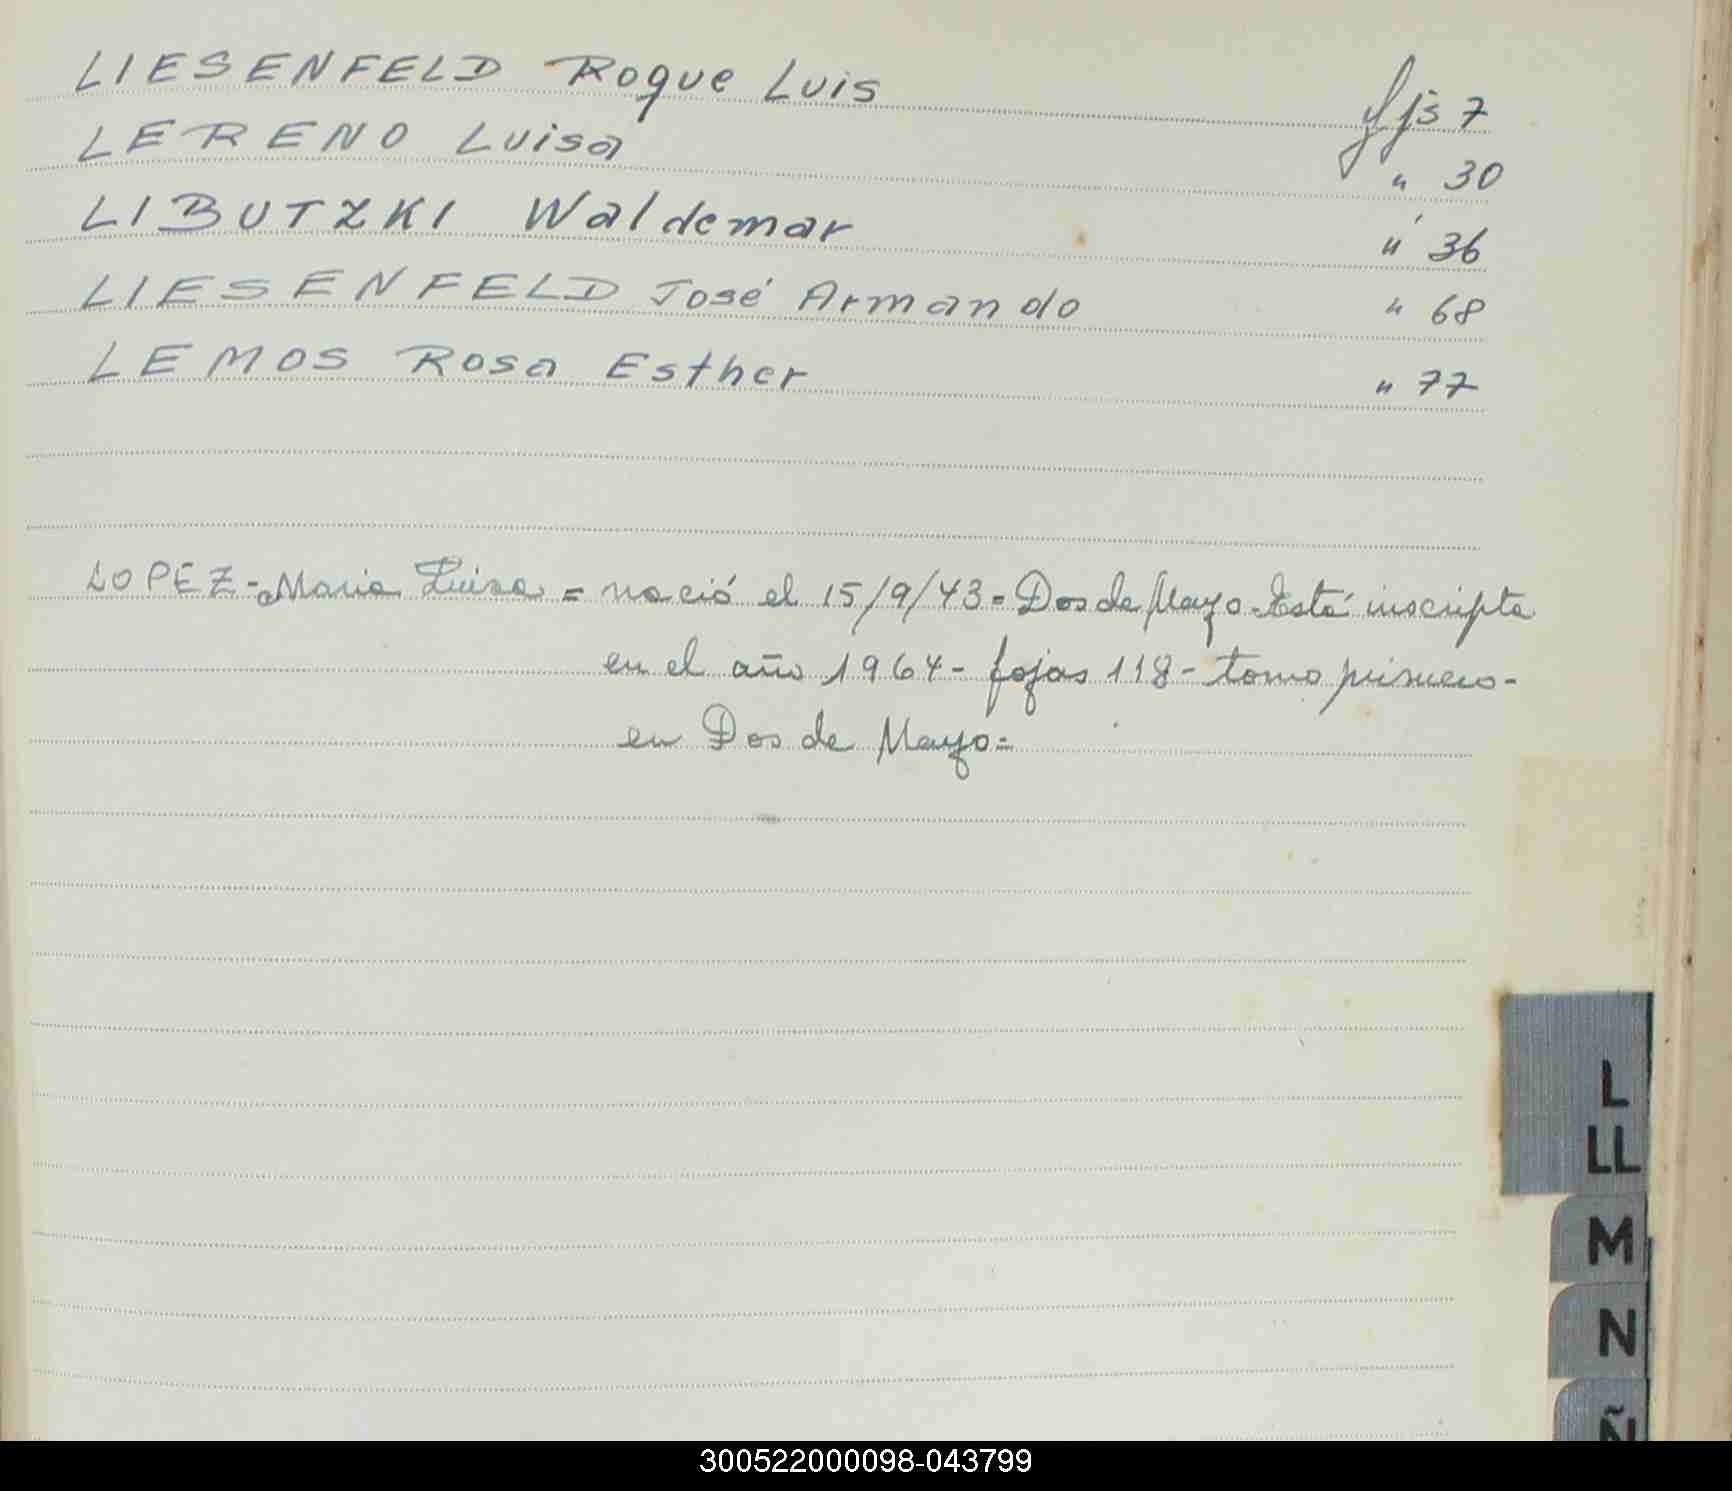 LIESENFELD Roque Luis fjs 7
LERENO Luisa " 30
LIBUTZKI Waldemar " 36
LIESENFELD José Armando " 68
LEMOS Rosa Esther " 77
LOPEZ - Maria Luisa = nació el 15/9/43 = Dos de Mayo - Está inscripta
en el año 1964 - fojas 118 - tomo primero -
en Dos de Mayo =
L
LL
M
N
Ñ
300522000098-043799